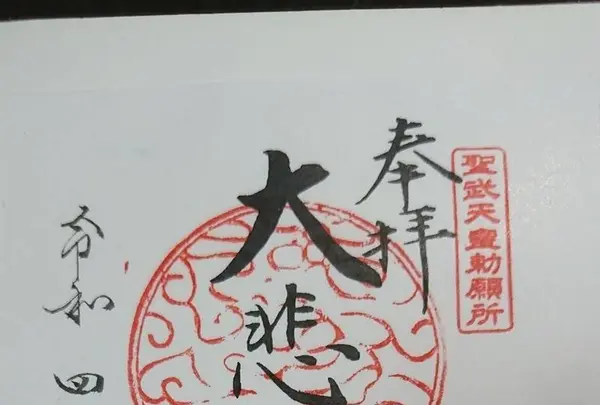 聖武天皇勅願所
奉拝
大悲
令和四